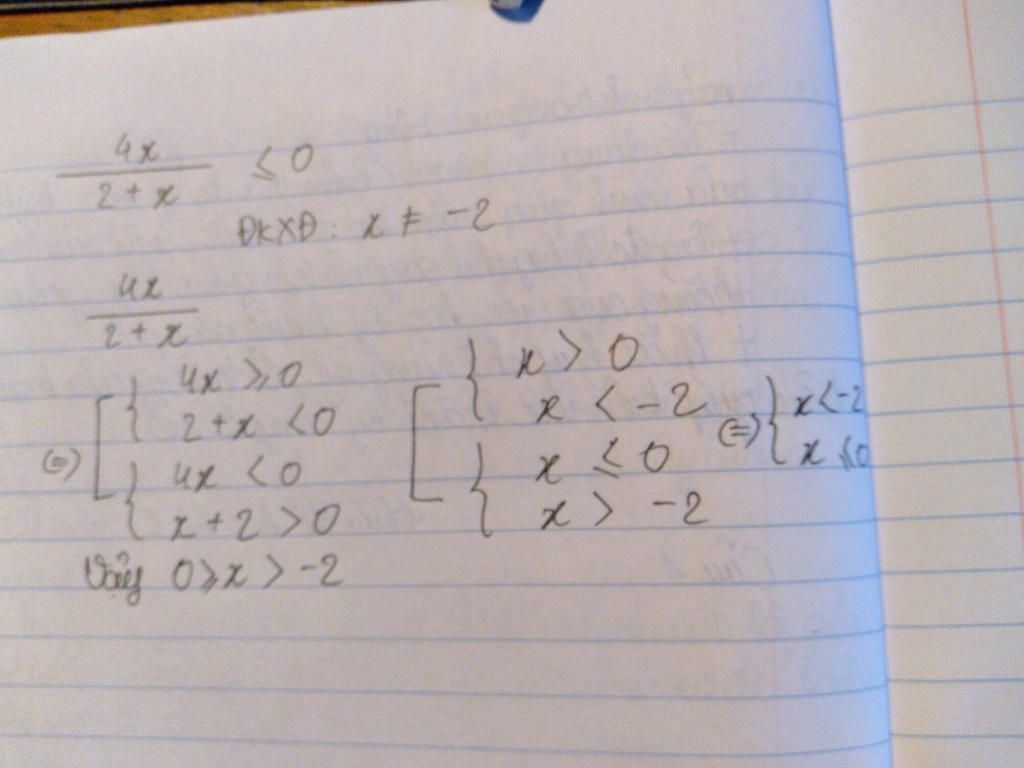 4x / 2 + x ≤ 0
ĐKXĐ : x ≠ -2
4x / 2 + x
4x ≥ 0 x > 0
2 + x < 0 x < -2
⇔ 4x < 0 x ≤ 0 ⇔ x < -2
x + 2 > 0 x > -2 x ≤ 0
Vậy 0 ≥ x > -2